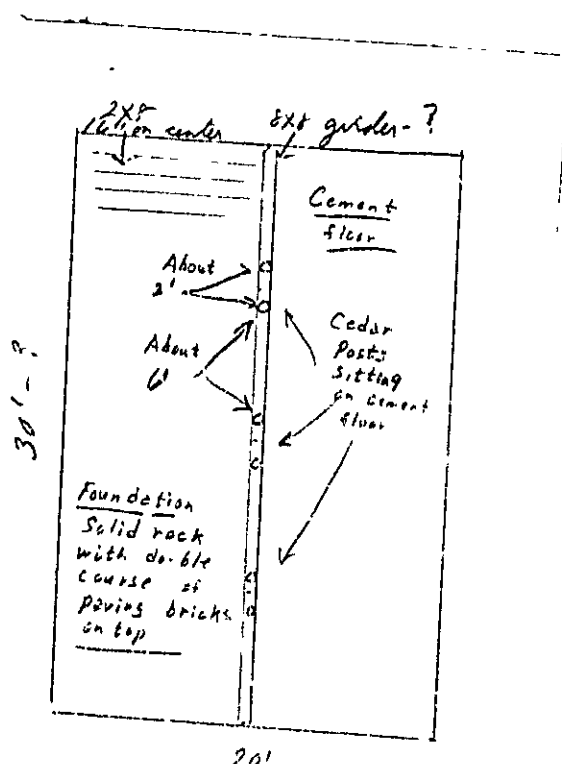 2X8
16" on center
8X8 girder - ?
Cement
floor
About
2'
About
6'
Cedar
Posts
Sitting
on cement
floor
30' - ?
Foundation
Solid rock
with double
course of
paving bricks
on top
20'